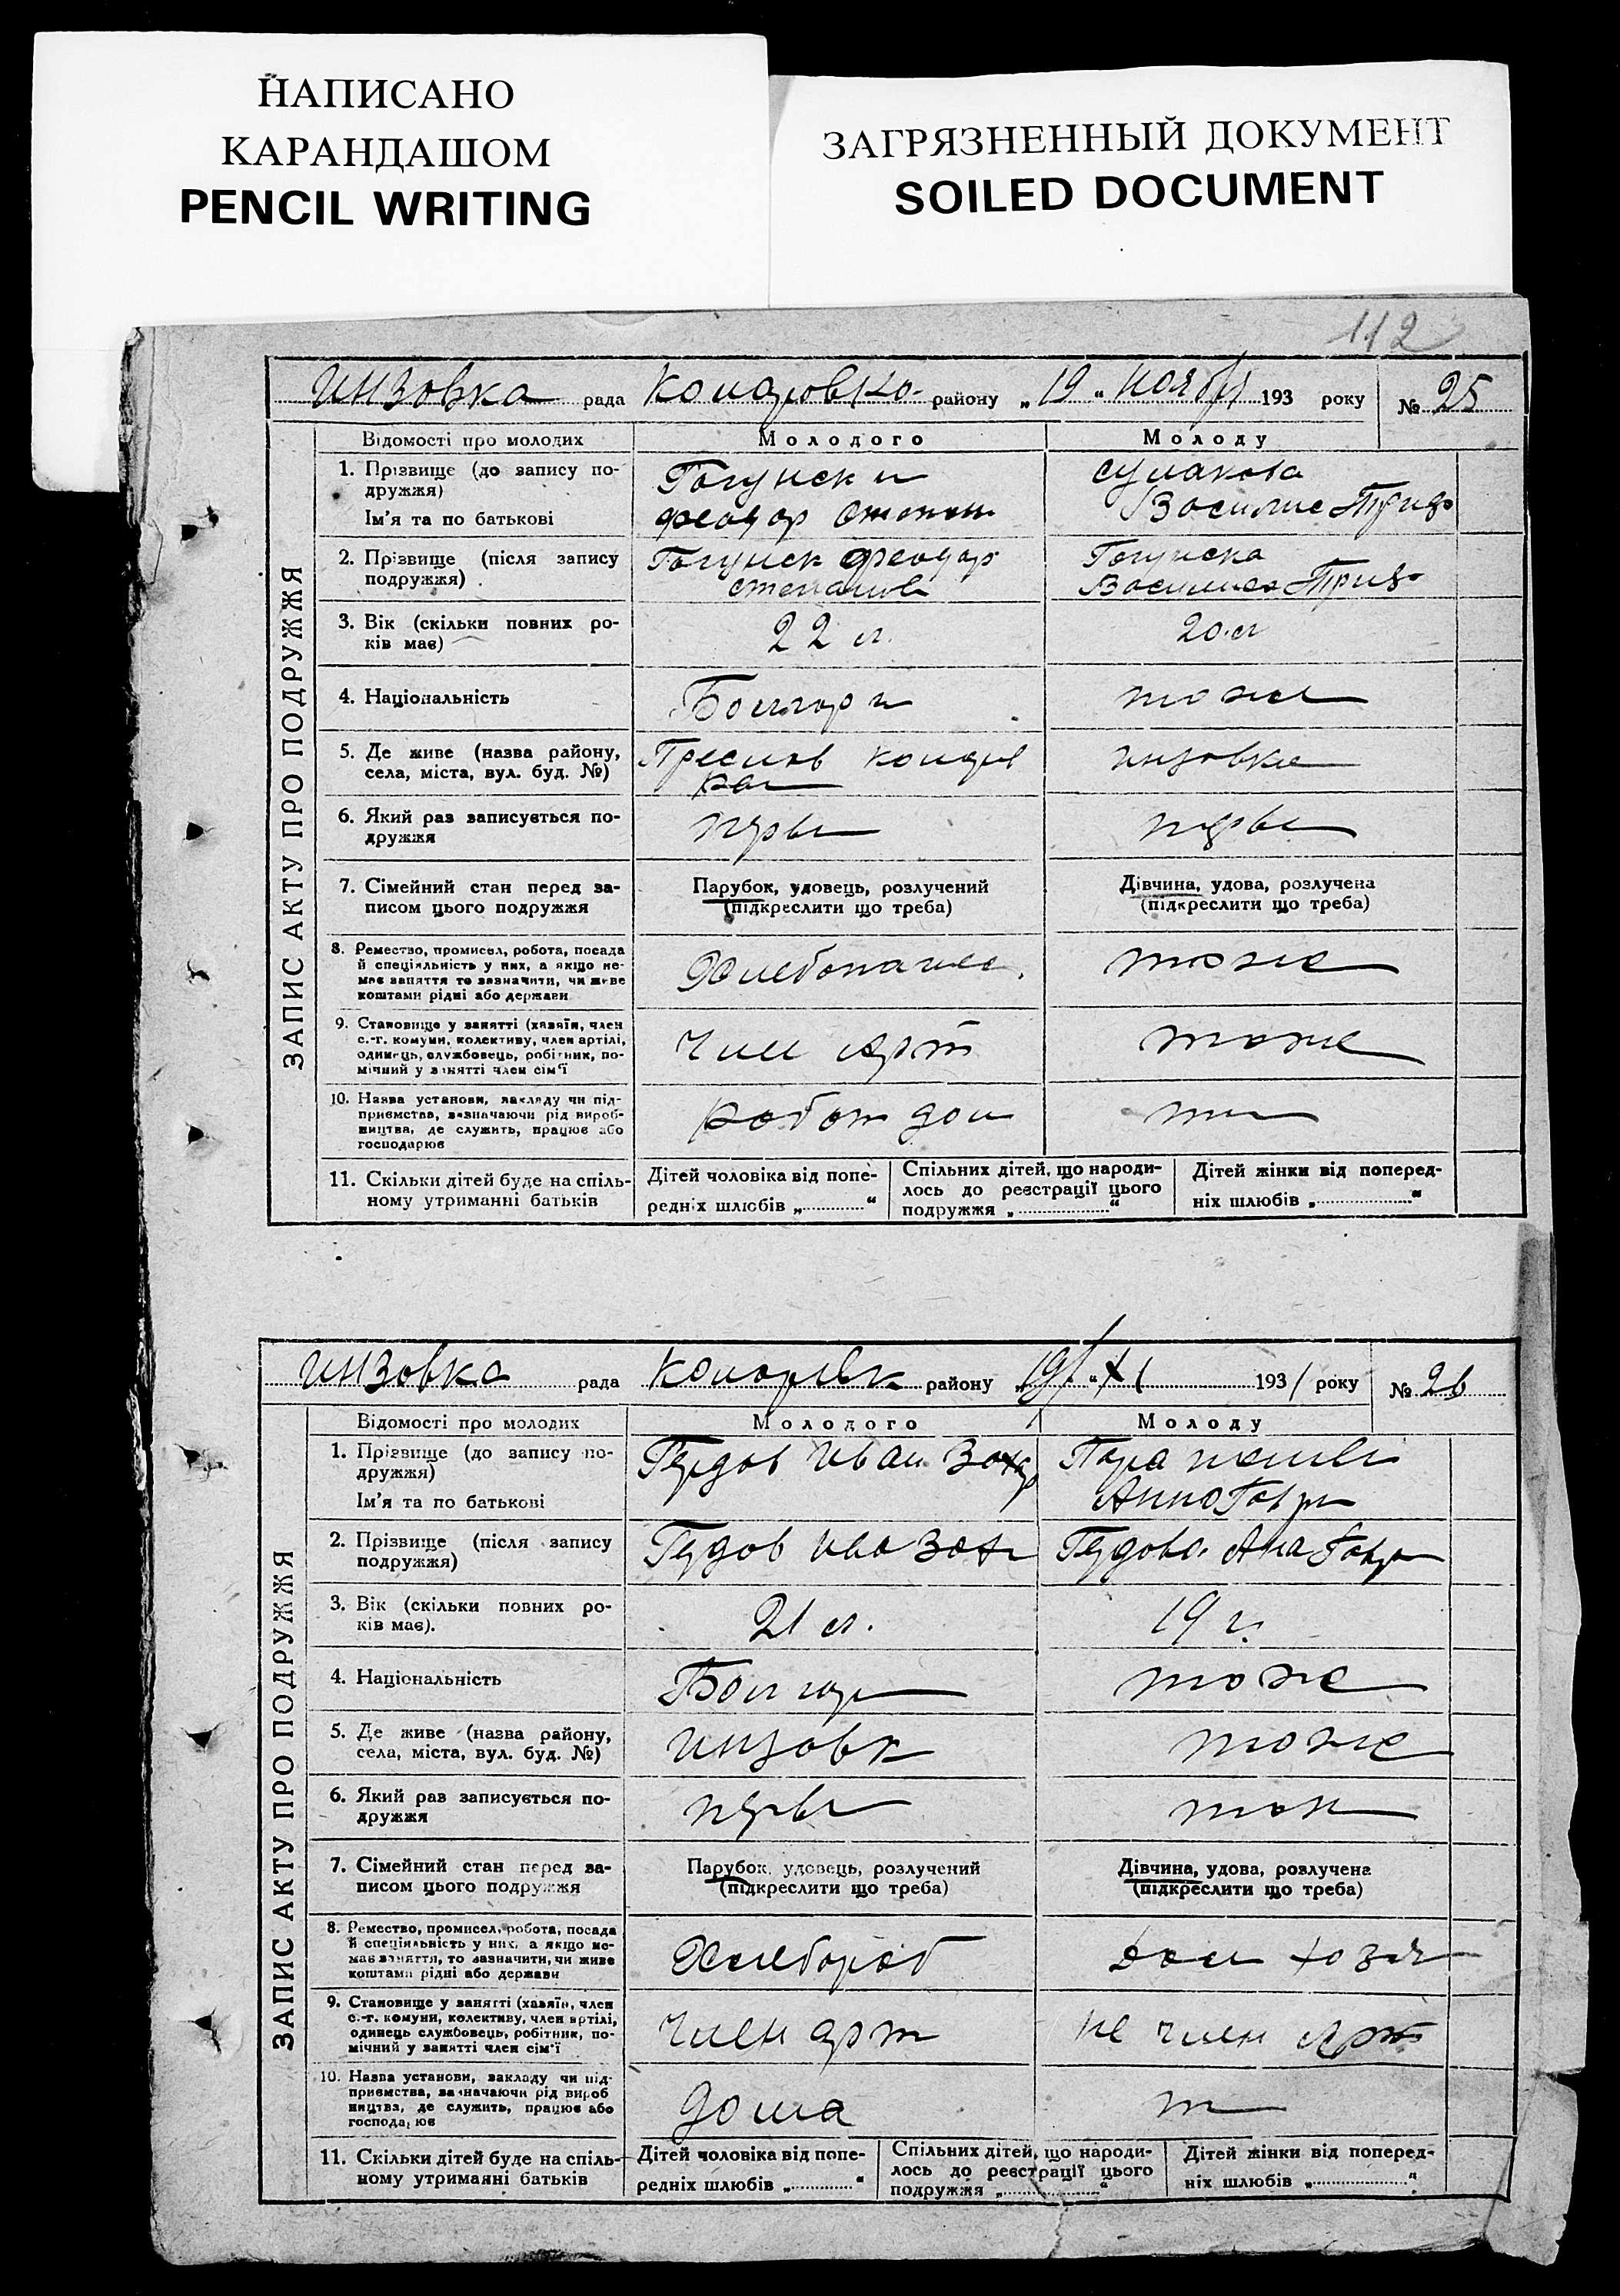 НАПИСАНО
КАРАНДАШОМ
PENCIL WRITING
ЗАГРЯЗНЕННЫЙ ДОКУМЕНТ
SOILED DOCUMENT
112
ЗАПИС АКТУ ПРО ПОДРУЖЖЯ
Инзовка рада району „19“ ноября 193 року № 25
Відомості про молодих Молодого Молоду
1. Прізвище (до запису по-
дружжя)
Ім'я та по батькові
Гогунски
Феодор Степан
Сумакова
Василис Триф
2. Прізвище (після запису
подружжя)
Гогунск Феодор
Степанов
Гогунска
Василиса Триф
3. Вік (скільки повних ро-
ків має)
22 л.
20 л
4. Національність
Болгари
тоже
5. Де живе (назва району,
села, міста, вул. буд. №)
Преслав
инзовка
6. Який раз записується по-
дружжя
первы
первы
7. Сімейний стан перед за-
писом цього подружжя
Парубок, удовець, розлучений
(підкреслити що треба)
Дівчина, удова, розлучена
(підкреслити що треба)
8. Ремество, промисел, робота, посада
й спеціяльність у них, а якщо не-
має заняття то зазначити, чи живе
коштами рідні або держави
Хлебопашес
тоже
9. Становище у занятті (хазяїн, член
с.-г. комуни, колективу, член артілі,
одинець, службовець, робітник, по-
мічний у занятті член сім'ї
Член Арт
тоже
10. Назва установи, закладу чи під-
приємства, зазначаючи рід вироб-
ництва, де служить, працює або
господарює
работ дом
11. Скільки дітей буде на спіль-
ному утриманні батьків
Дітей чоловіка від попе-
редніх шлюбів „ “
Спільних дітей, що народи-
лось до реєстрації цього
подружжя „ “
Дітей жінки від поперед-
ніх шлюбів „ “
ЗАПИС АКТУ ПРО ПОДРУЖЖЯ
Инзовка рада району „19“ XI 1931 року № 26
Відомості про молодих Молодого Молоду
1. Прізвище (до запису по-
дружжя)
Ім'я та по батькові
Гудов Иван Захар
Анна Гаври
2. Прізвище (після запису
подружжя)
Гудов Ива Заха
Гудова Ана Гавр
3. Вік (скільки повних ро-
ків має).
21 л.
19 г.
4. Національність
Болгар
тоже
5. Де живе (назва району,
села, міста, вул. буд. №)
инзовк
тоже
6. Який раз записується по-
дружжя
первы
тож
7. Сімейний стан перед за-
писом цього подружжя
Парубок, удовець, розлучений
(підкреслити що треба)
Дівчина, удова, розлучена
(підкреслити що треба)
8. Ремество, промисел, робота, посада
й спеціяльність у них, а якщо не-
має заняття, то зазначити, чи живе
коштами рідні або держави
Хлебороб
дом хозя
9. Становище у занятті (хазяїн, член
с.-г. комуни, колективу, член артілі,
одинець службовець, робітник, по-
мічний у занятті член сім'ї
член арт
не член Арт
10. Назва установи, закладу чи під-
приємства, зазначаючи рід вироб
ництва, де служить, працює або
господарює
дома
т
11. Скільки дітей буде на спіль-
ному утриманні батьків
Дітей чоловіка від попе-
редніх шлюбів „ “
Спільних дітей, що народи-
лось до реєстрації цього
подружжя „ “
Дітей жінки від поперед-
ніх шлюбів „ “